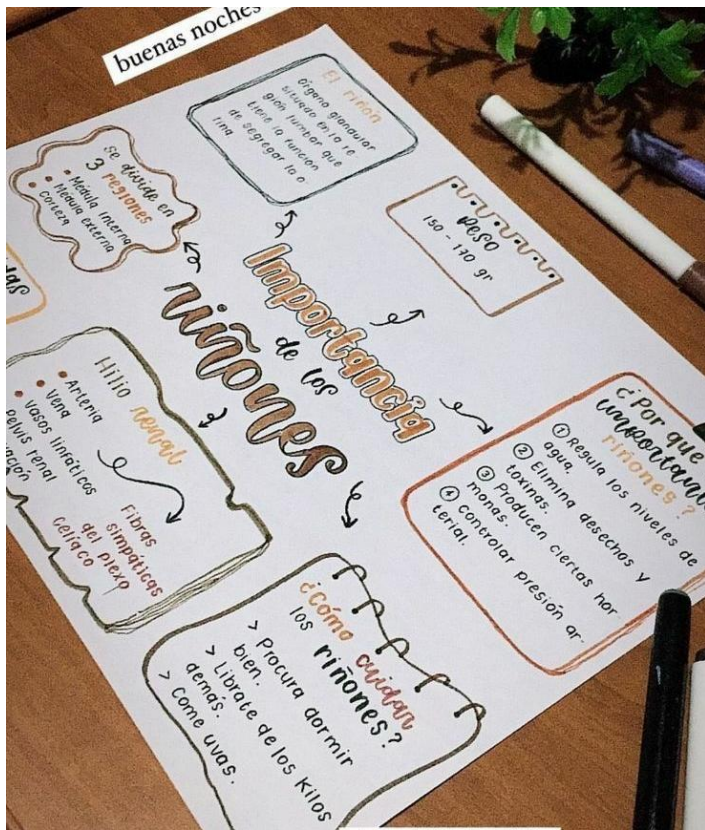 buenas noches
El riñon
Organo glandular
situado en la re
gión lumbar que
tiene la función
de segregar la o
rina
se divide en
3 regiones
Médula interna
Médula externa
corteza
Peso
150 - 170 gr
Importancia
de los
riñones
Hilio
renal
Arteria
Vena
Vasos linfáticos
Pelvis renal
Fibras
simpáticas
del plexo
Celíaco
¿Por que
riñones?
① Regula los niveles de
agua.
② Elimina desechos y
toxinas.
③ Producen ciertas hor-
monas.
④ controlar presión ar-
terial.
¿Cómo cuidar
los riñones?
> Procura dormir
bien.
> Librate de los Kilos
demás.
> Come uvas.